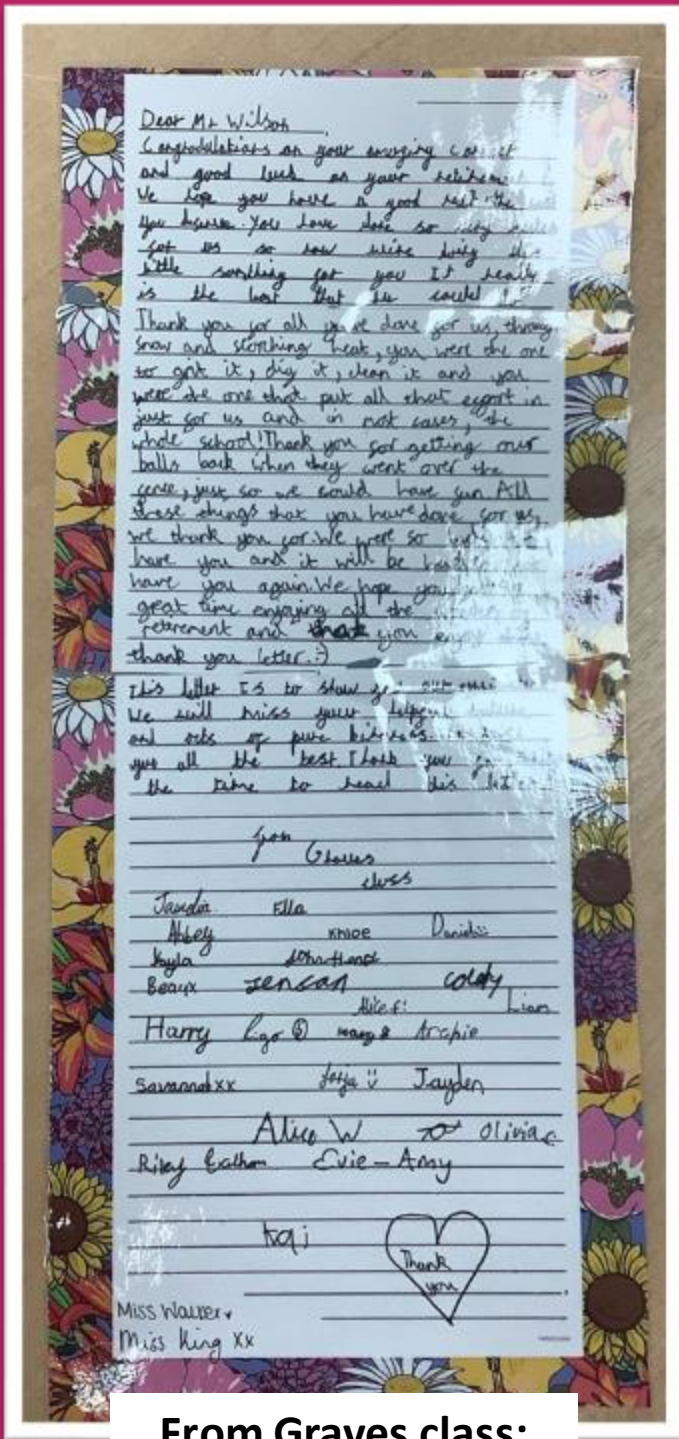 Dear Mr Wilson,
Congradulations on your amazing career
and good luck on your retirement
We hope you have a good rest the
you deserve. You have done so
for us so now we're doing this
little somthing for you It really
is the best that we could
Thank you for all you've done for us, through
snow and scorching heat, you were the one
to grit it, dig it, clean it and you
were the one that put all that effort in
just for us and in most cases, the
whole school! Thank you for getting our
balls back when they went over the
fence, just so we could have fun All
these things that you have done for us,
we thank you for. We were so
have you and it will be
have you again. We hope you
great time enjoying all the
retirement and that you enjoy
thank you letter. :)
This letter Is to show
We will miss your helpful
and acts of pure kindness
you all the best. Thank you
the time to read this
from
Graves
class
Ella
Abbey Khloe Daniel
Kayla
Beau x Jenson
Alice F: Liam
Harry Archie
Savannah xx Jayden
Alice W Olivia
Riley Evie-Amy
Kai
Thank
you
Miss Walker
Miss King xx
From Graves class: